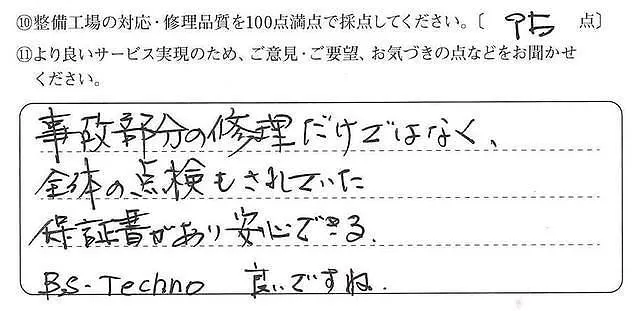 ⑩整備工場の対応・修理品質を100点満点で採点してください。〔 95 点〕
⑪より良いサービス実現のため、ご意見・ご要望、お気づきの点などをお聞かせ
ください。
事故部分の修理だけではなく、
全体の点検もされていた
保証書があり安心できる.
B.S-Techno 良いですね.